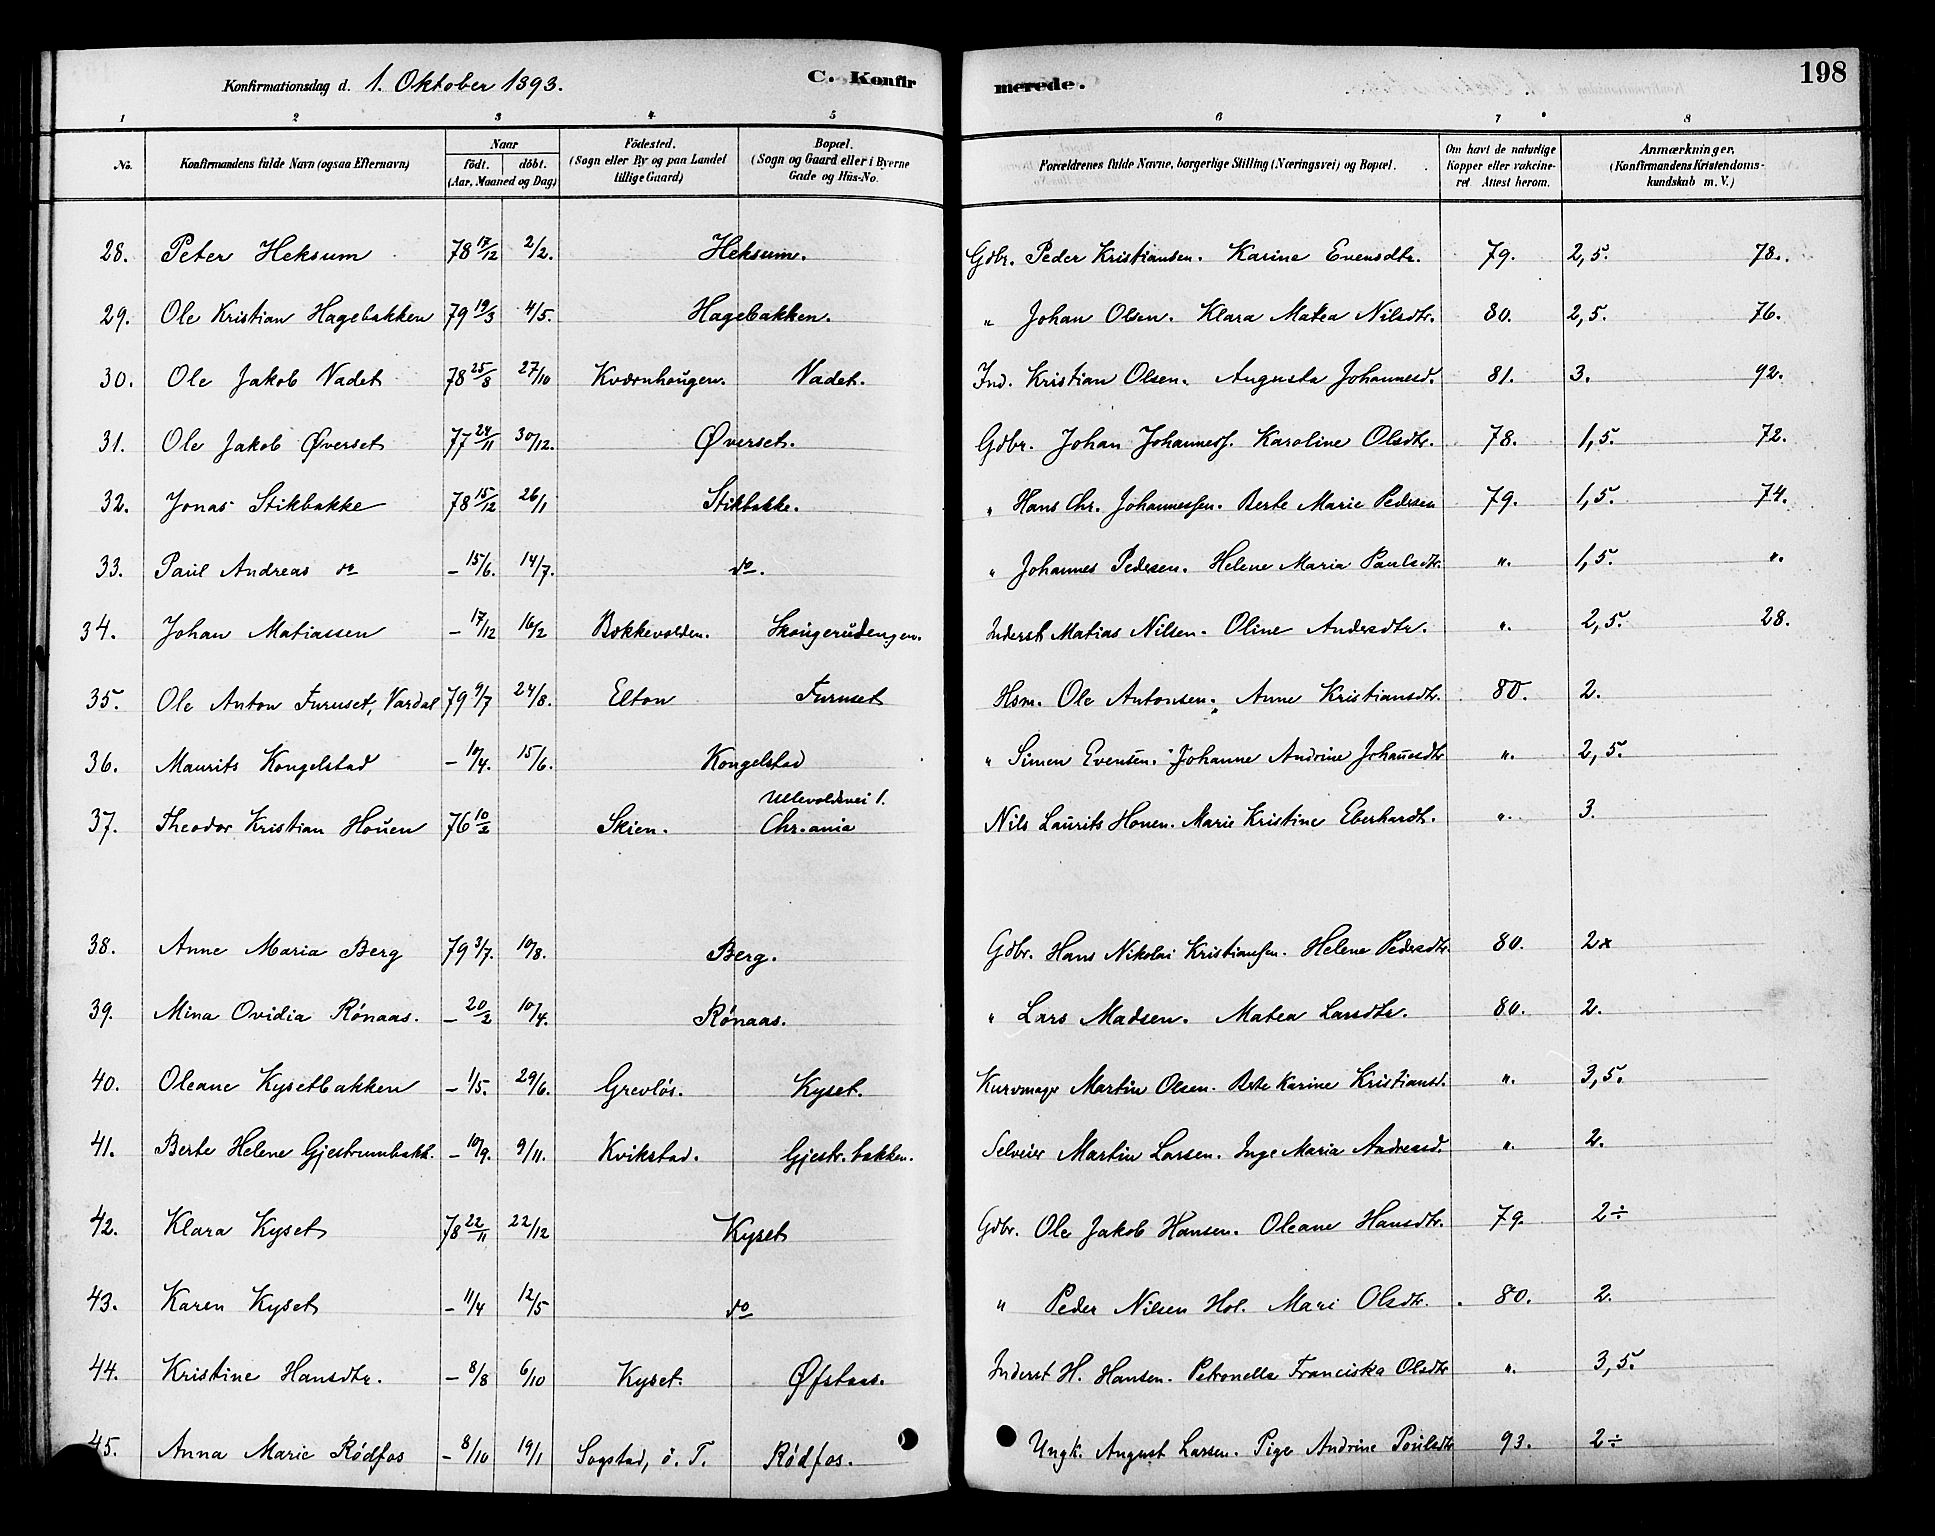 Konfirmationsdag d. 1. Oktober 1893. C. Konfirmerede. 198
1 2 3 4 5 6 7 8
No. Konfirmandens fulde Navn (ogsaa Efternavn) Naar födt. döbt. (Aar, Maaned og Dag) Födested. (Sogn eller By og paa Landet tillige Gaard) Bopæl. (Sogn og Gaard eller i Byerne Gade og Hüs-No. Forældrenes fulde Navne, borgerlige Stilling (Næringsvei) og Bopæl. Om havt de naturlige Kopper eller vakcineret. Attest herom. Anmærkninger. (Konfirmandens Kristendomskundskab m. V.)
28. Peter Heksum 78 17/12 2/2. Heksum. Gdbr. Peder Kristiansen. Karine Evensdtr. 79. 2,5. 78.
29. Ole Kristian Hagebakken 79 19/3 4/5. Hagebakken. " Johan Olsen. Klara Matea Nilsdtr. 80. 2,5. 76.
30. Ole Jakob Vadet 78 25/8 27/10 Kværnhougen. Vadet. Ind. Kristian Olsen. Augusta Johannesd. 81. 3. 92.
31. Ole Jakob Øverset 77 24/11 30/12. Øverset. Gdbr. Johan Johanness. Karoline Olsdtr. 78. 1,5. 72.
32. Jonas Stikbakke 78 15/12 26/1 Stikbakke. " Hans Chr. Johannessen. Berte Marie Pedersen 79. 1,5. 74.
33. Paul Andreas do - 15/6. 14/7. do. " Johannes Pedersen. Helene Maria Paulsdtr. ". 1,5. ".
34. Johan Matiassen - 17/12 16/2 Bokkevolden. Skougerudengen. Inderst Matias Nilsen. Oline Andersdtr. ". 2,5. 28.
35. Ole Anton Furuset, Vardal 79 9/7 24/8. Elton Furuset Hsm. Ole Antonsen. Anne Kristiansdtr. 80. 2.
36. Maurits Kongelstad - 10/4. 15/6. Kongelstad " Simen Evensen. Johanne Andrine Johansdtr ". 2,5.
37. Theodor Kristian Houen 76 10/2 Skien. Ullevoldsvei 1. Chr.ania Nils Laurits Houen. Marie Kristine Eberhardt. ". 3.
38. Anne Maria Berg 79 3/7. 10/8. Berg. Gdbr. Hans Nikolai Kristiansen. Helene Pedersdtr. 80. 2x
39. Mina Ovidia Rönaas. - 20/2 10/4. Rönaas. " Lars Madsen. Matea Larsdtr. 80. 2.
40. Oleane Kysetbakken - 1/5. 29/6. Grevlös. Kyset. Kurvmagr Martin Olsen. Brte Karine Kristiansd. ". 3,5.
41. Berte Helene Gjestrumbakk. - 10/9. 9/11. Kvikstad. Gjestr.bakken. Selveier Martin Larsen. Inge Maria Andreasd. ". 2.
42. Klara Kyset 78 22/11 22/12 Kyset Gdbr. Ole Jakob Hansen. Oleane Hansdtr. 79. 2÷
43. Karen Kyset - 11/4 12/5 do " Peder Nilsen Hol. Mari Olsdtr. 80. 2.
44. Kristine Hansdtr. - 8/8 6/10 Kyset. Øfstaas. Inderst H. Hansen. Petronella Franciska Olsdtr ". 3,5.
45. Anna Marie Rödfos - 8/10 19/1 Sogstad, ö. T. Rödfos. Ungk. August Larsen. Pige Andrine Poulsdtr 93. 2÷